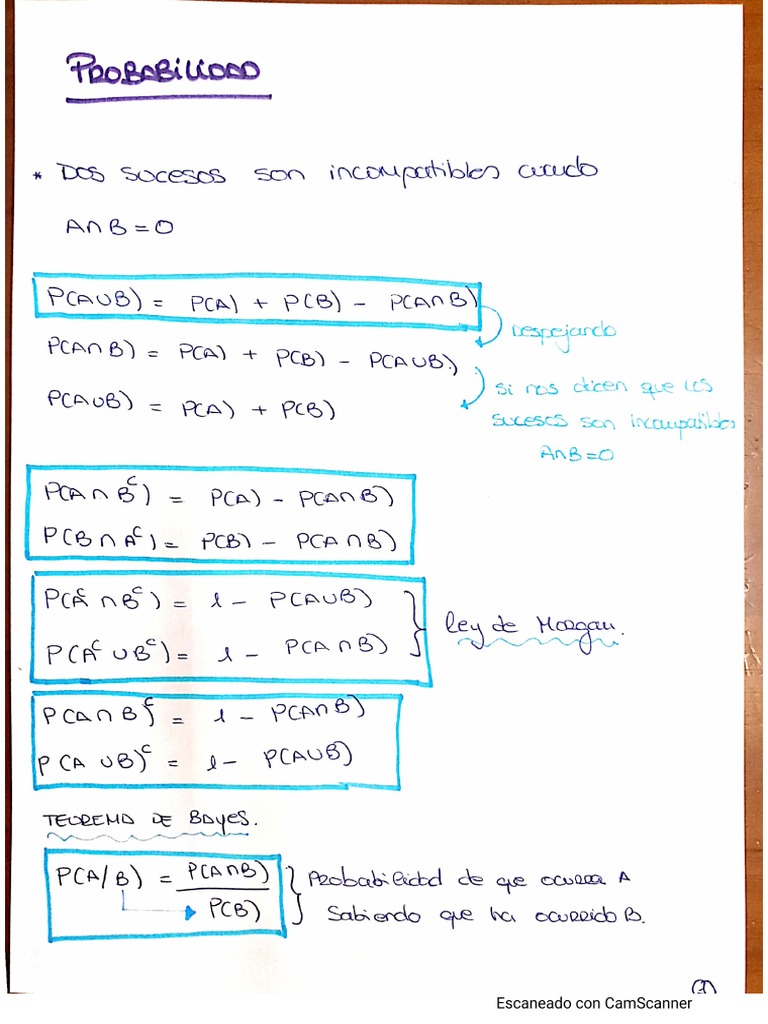 PROBABILIDAD
* Dos sucesos son incompatibles cuando
A∩B=0
P(A∪B) = P(A) + P(B) - P(A∩B)
Despejando
P(A∩B) = P(A) + P(B) - P(A∪B)
si nos dicen que los
P(A∪B) = P(A) + P(B)
sucesos son incompatibles
A∩B=0
P(A∩Bᶜ) = P(A) - P(A∩B)
P(B∩Aᶜ) = P(B) - P(A∩B)
P(Aᶜ∩Bᶜ) = 1 - P(A∪B)
Ley de Morgan.
P(Aᶜ∪Bᶜ) = 1 - P(A∩B)
P(A∩B)ᶜ = 1 - P(A∩B)
P(A∪B)ᶜ = 1 - P(A∪B)
TEOREMA DE BAyes.
P(A/B) = P(A∩B)
P(B)
Probabilidad de que ocurra A
Sabiendo que ha ocurrido B.
Escaneado con CamScanner